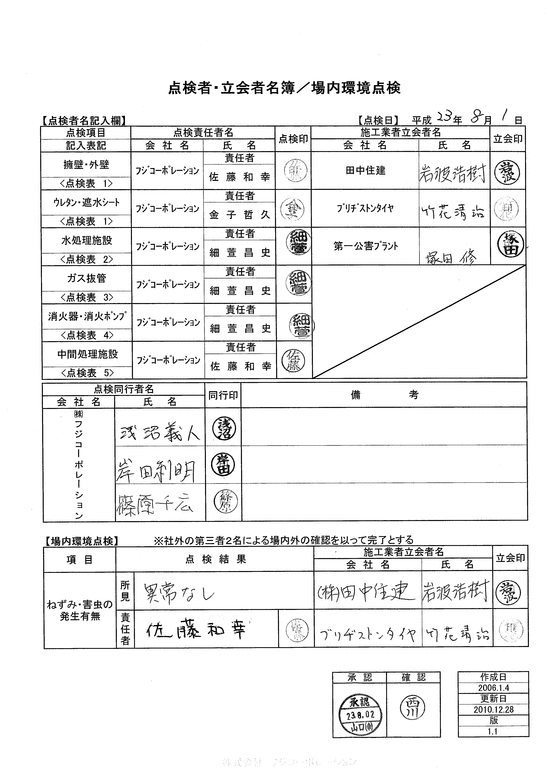 点検者・立会者名簿／場内環境点検
【点検者名記入欄】 【点検日】 平成 23年 8月 1日
点検項目 点検責任者名 点検印 施工業者立会者名 立会印
記入表記 会社名 氏名 会社名 氏名
擁壁・外壁 <点検表 1> フジコーポレーション 責任者 佐藤和幸 田中住建 岩波浩樹 岩波
ウレタン・遮水シート <点検表 1> フジコーポレーション 責任者 金子哲久 ブリヂストンタイヤ 竹花清治
水処理施設 <点検表 2> フジコーポレーション 責任者 細萱昌史 細萱 第一公害プラント 塚田修 塚田
ガス抜管 <点検表 3> フジコーポレーション 責任者 細萱昌史 細萱
消火器・消火ポンプ <点検表 4> フジコーポレーション 責任者 細萱昌史 細萱
中間処理施設 <点検表 5> フジコーポレーション 責任者 佐藤和幸 佐藤
点検同行者名 同行印 備考
会社名 氏名
㈱フジコーポレーション
浅沼義人 浅沼
岸田利明 岸田
篠原千広
【場内環境点検】 ※社外の第三者2名による場内外の確認を以って完了とする
項目 点検結果 施工業者立会者名 立会印
会社名 氏名
ねずみ・害虫の発生有無
所見 異常なし (株)田中住建 岩波浩樹 岩波
責任者 佐藤和幸 ブリヂストンタイヤ 竹花清治
承認 確認
承認 23.8.02 山口 西川
作成日
2006.1.4
更新日
2010.12.28
版
1.1
株式会社 フジコーポレーション